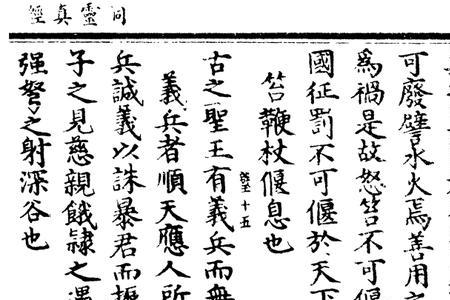 洞靈真經
可廢譬水火焉善用
爲禍是故怒笞不可偃
國征罰不可偃於天下
笞鞭杖偃息也
十五
古之聖王有義兵而無
義兵者順天應人所
兵誠義以誅暴君而振
子之見慈親餓隷之遇
强弩之射深谷也